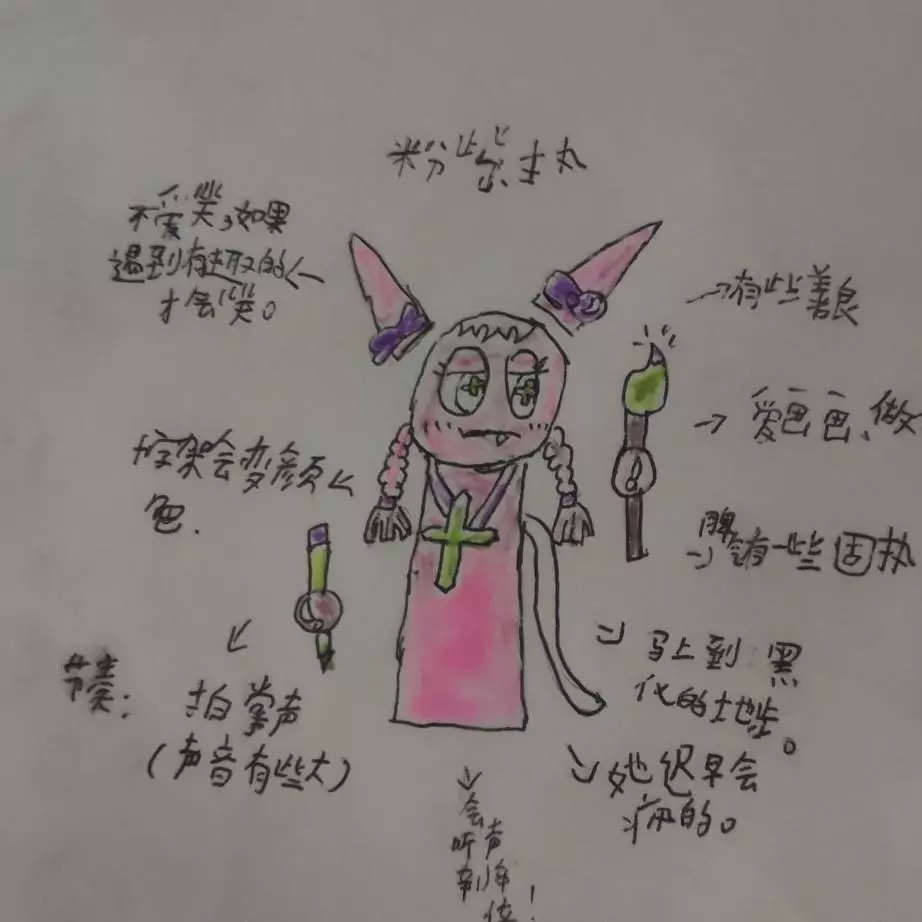 不爱笑，如果
遇到有趣的
才会笑。
有些善良
爱画画、做
字架会变颜
色.
有一些固执
马上到黑
化的地步。
节奏：
拍掌声
（声音有些大）
她迟早会
疯的。
会
听声